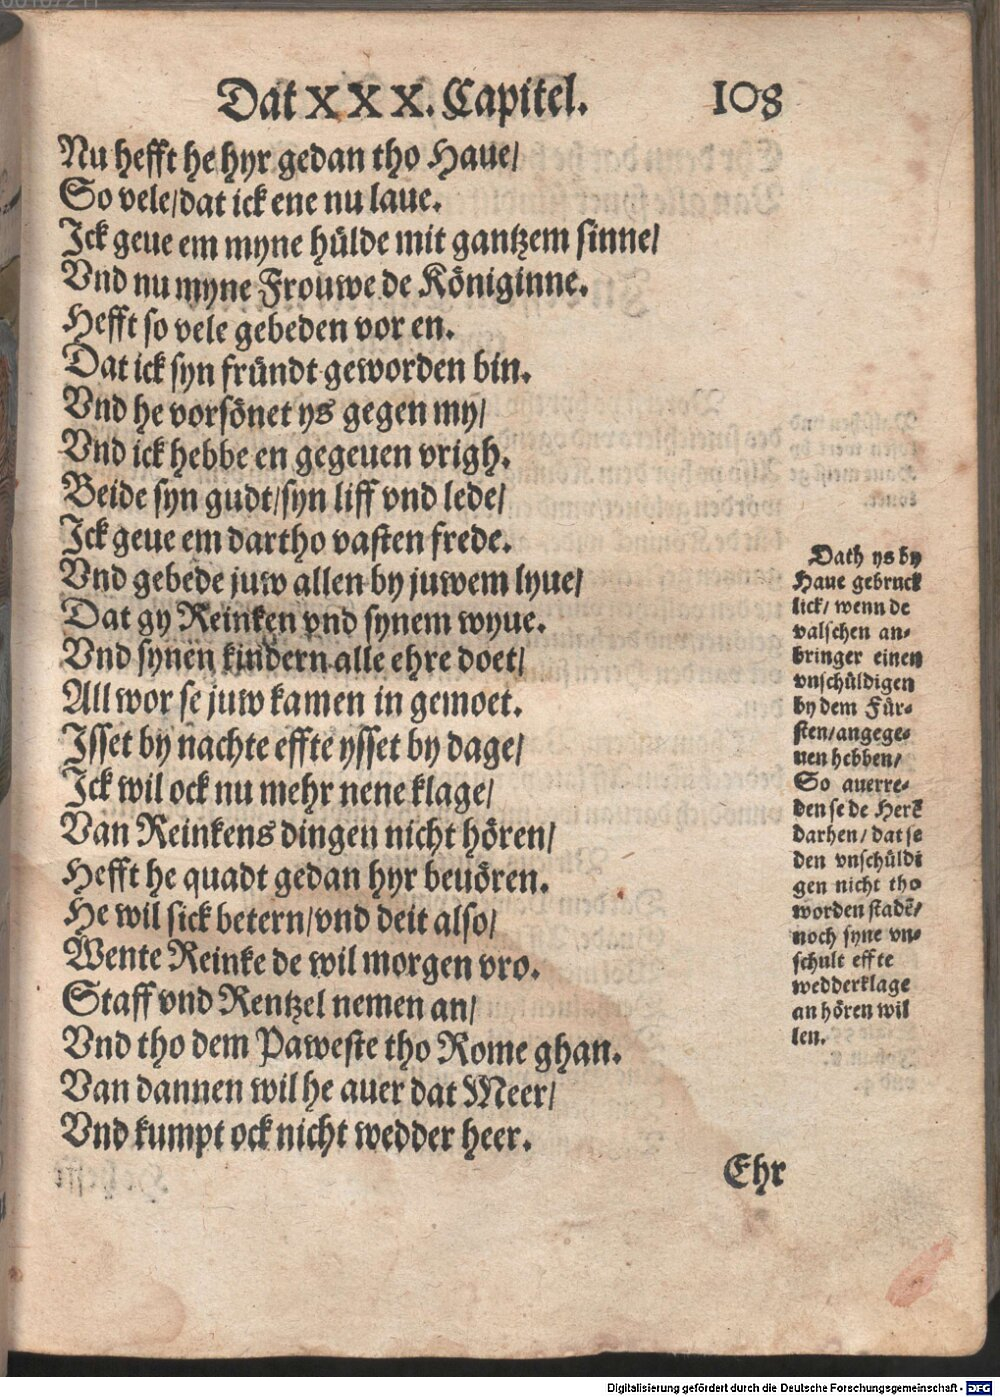 Dat XXX. Capitel. 108
Nu hefft he hyr gedan tho Haue/
So vele/dat ick ene nu laue.
Ick geue em myne hülde mit gantzem sinne/
Vnd nu myne Frouwe de Königinne.
Hefft so vele gebeden vor en.
Dat ick syn fründt geworden bin.
Vnd he vorsönet ys gegen my/
Vnd ick hebbe en gegeuen vrigh.
Beide syn gudt/syn liff vnd lede/
Ick geue em dartho vasten frede.
Vnd gebede juw allen by juwem lyue/
Dat gy Reinken vnd synem wyue.
Vnd synen kindern alle ehre doet/
All wor se juw kamen in gemoet.
Isset by nachte effte ysset by dage/
Ick wil ock nu mehr nene klage/
Van Reinkens dingen nicht hören/
Hefft he quadt gedan hyr beuören.
He wil sick betern/vnd deit also/
Wente Reinke de wil morgen vro.
Staff vnd Rentzel nemen an/
Vnd tho dem Paweste tho Rome ghan.
Van dannen wil he auer dat Meer/
Vnd kumpt ock nicht wedder heer.
Ehr
Dath ys by
Haue gebruck
lick/ wenn de
valschen an⸗
bringer einen
vnschüldigen
by dem Für⸗
sten/angege⸗
uen hebben/
So auerre⸗
den se de Herẽ
darhen/ dat se
den vnschüldi
gen nicht tho
worden stadẽ/
noch syne vn⸗
schult effte
wedderklage
an hören wil
len.
Digitalisierung gefördert durch die Deutsche Forschungsgemeinschaft - DFG